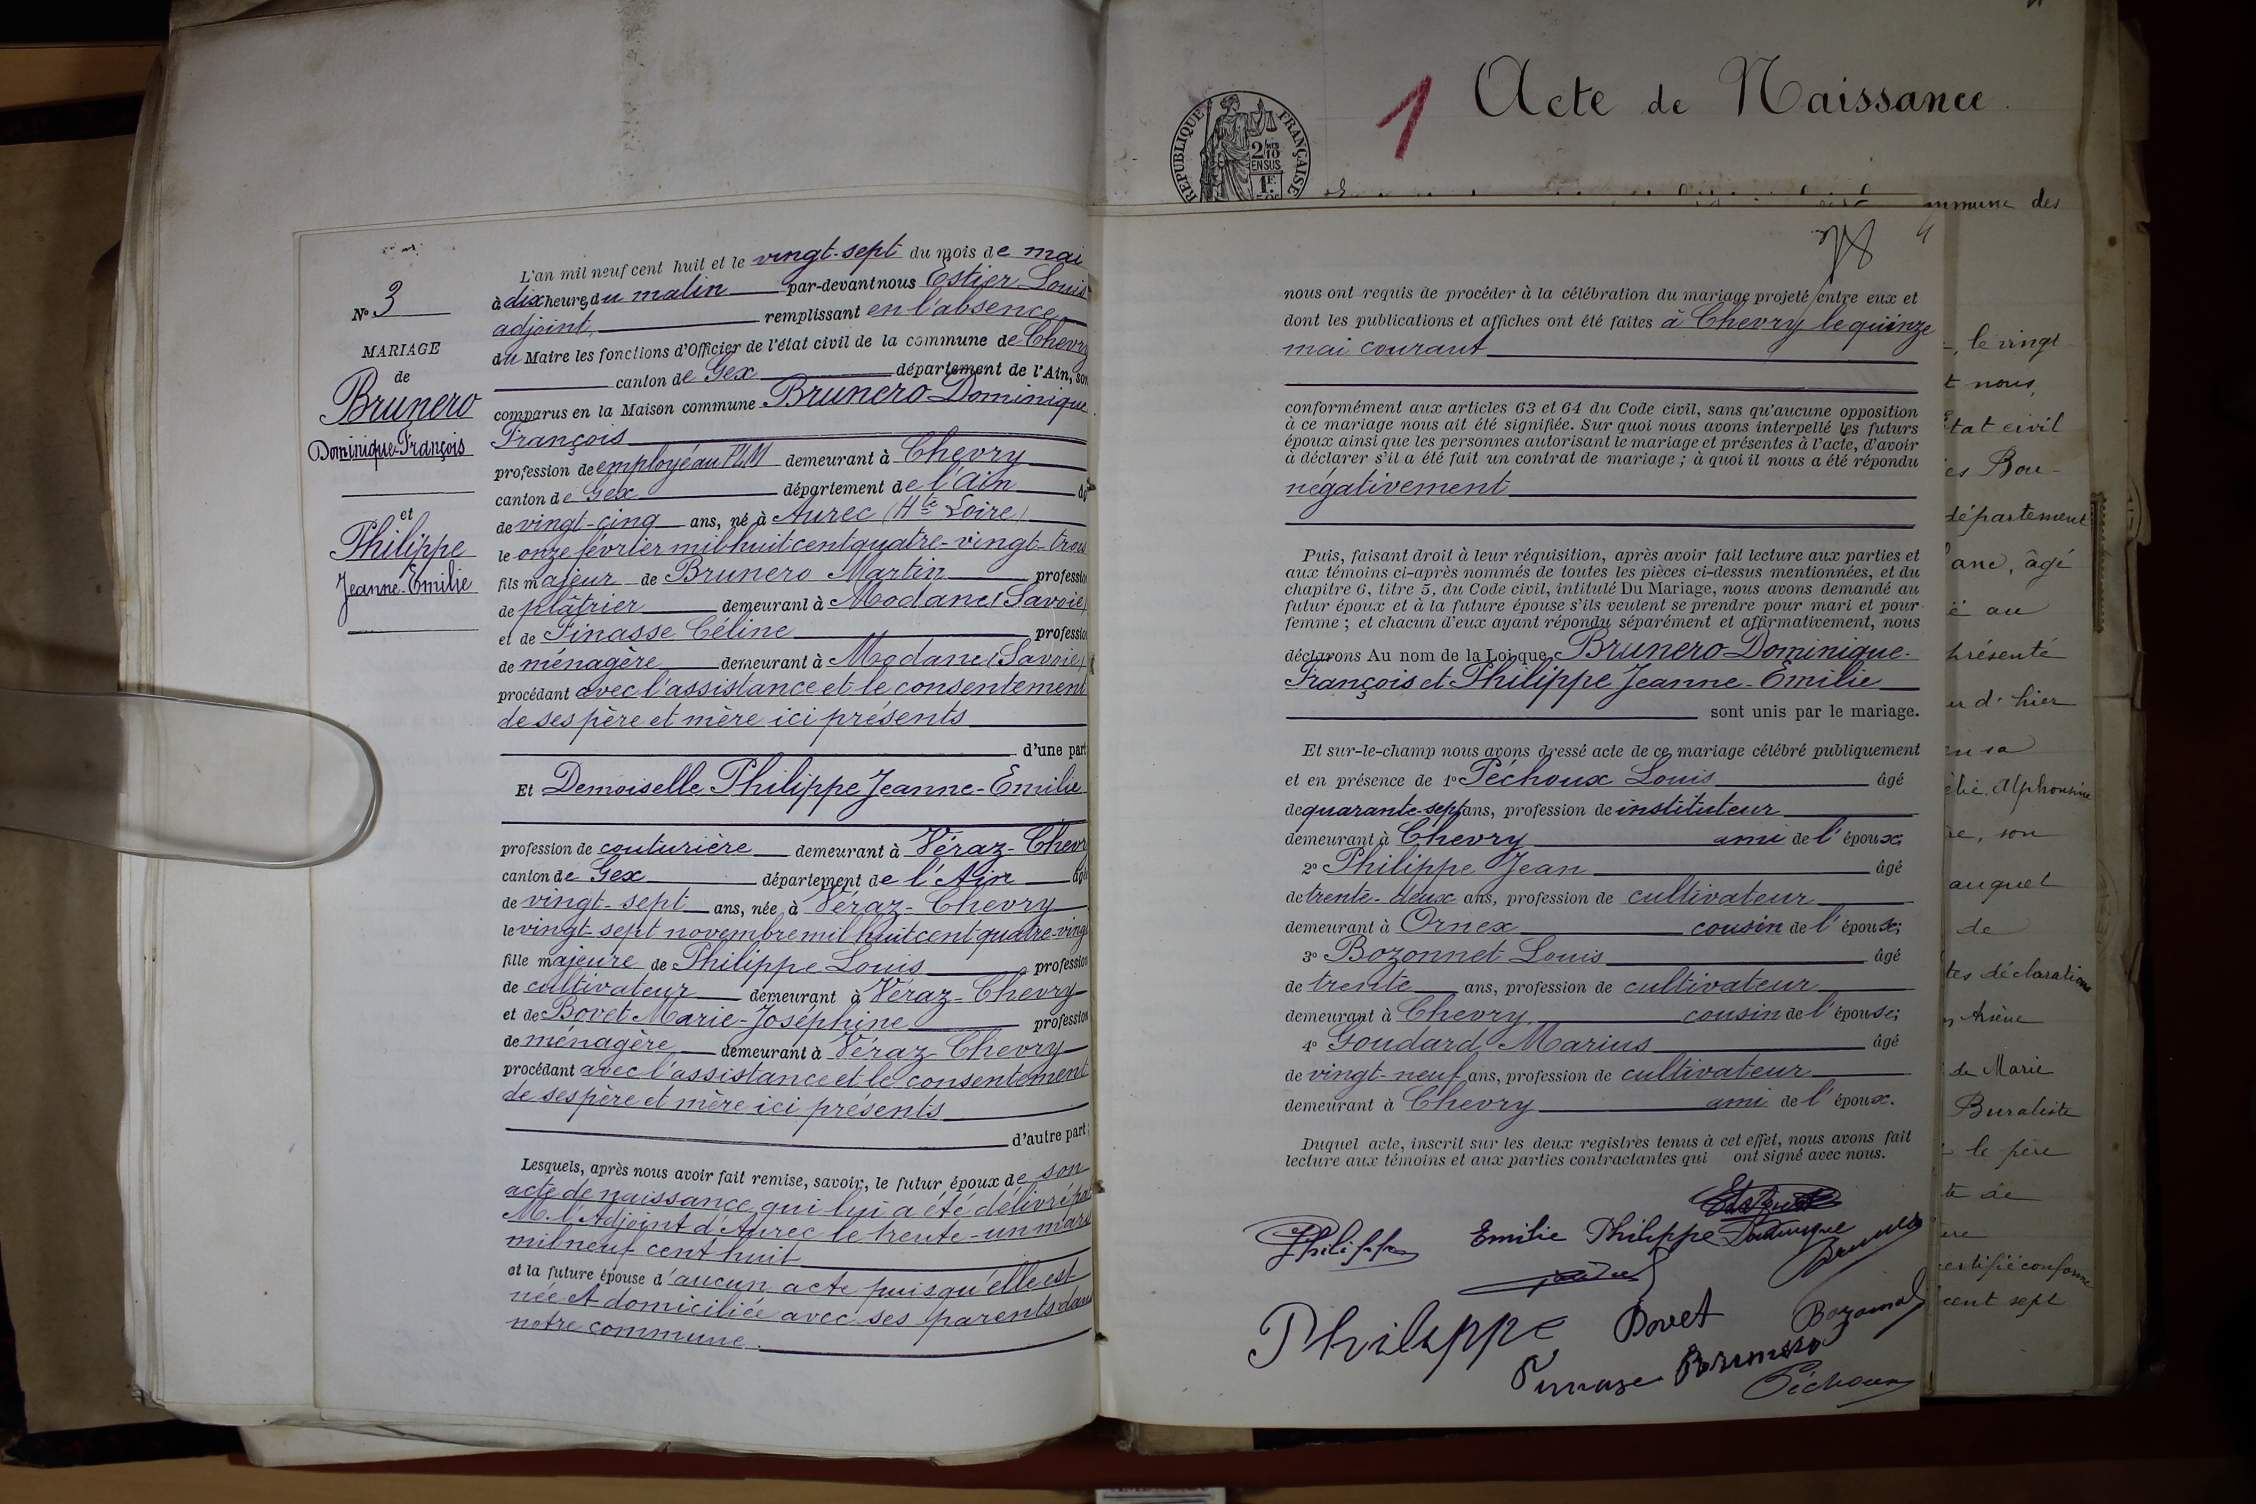 Nº 3
MARIAGE
de
Brunero
Dominique-François
et
Philippe
Jeanne-Émilie
L'an mil neuf cent huit et le vingt-sept du mois de mai
à dix heures du matin par-devant nous Estier Louis
adjoint, remplissant en l'absence
du Maire les fonctions d'Officier de l'état civil de la commune de Chevry
canton de Gex département de l'Ain, son
comparus en la Maison commune Brunero Dominique
François
profession de employé au PLM demeurant à Chevry
canton de Gex département de l'Ain
de vingt-cinq ans, né à Aurec (Hte Loire)
le onze février mil huit cent quatre-vingt-trois
fils majeur de Brunero Martin profession
de plâtrier demeurant à Modane (Savoie)
et de Finasse Céline profession
de ménagère demeurant à Modane (Savoie)
procédant avec l'assistance et le consentement
de ses père et mère ici présents
d'une part
Et Demoiselle Philippe Jeanne-Émilie
profession de couturière demeurant à Véraz-Chevry
canton de Gex département de l'Ain âgé
de vingt-sept ans, née à Véraz-Chevry
le vingt-sept novembre mil huit cent quatre-vingt
fille majeure de Philippe Louis profession
de cultivateur demeurant à Véraz-Chevry
et de Bovet Marie-Joséphine profession
de ménagère demeurant à Véraz-Chevry
procédant avec l'assistance et le consentement
de ses père et mère ici présents
d'autre part;
Lesquels, après nous avoir fait remise, savoir, le futur époux de son
acte de naissance qui lui a été délivré par
M. l'Adjoint d'Aurec le trente-un mars
mil neuf cent huit
et la future épouse d'aucun acte puisqu'elle est
née et domiciliée avec ses parents dans
notre commune.
Acte de Naissance
1
RÉPUBLIQUE FRANÇAISE
2/10
EN SUS
1F.
nous ont requis de procéder à la célébration du mariage projeté entre eux et
dont les publications et affiches ont été faites à Chevry le quinze
mai courant
conformément aux articles 63 et 64 du Code civil, sans qu'aucune opposition
à ce mariage nous ait été signifiée. Sur quoi nous avons interpellé les futurs
époux ainsi que les personnes autorisant le mariage et présentes à l'acte, d'avoir
à déclarer s'il a été fait un contrat de mariage; à quoi il nous a été répondu
négativement
Puis, faisant droit à leur réquisition, après avoir fait lecture aux parties et
aux témoins ci-après nommés de toutes les pièces ci-dessus mentionnées, et du
chapitre 6, titre 5, du Code civil, intitulé Du Mariage, nous avons demandé au
futur époux et à la future épouse s'ils veulent se prendre pour mari et pour
femme; et chacun d'eux ayant répondu séparément et affirmativement, nous
déclarons Au nom de la Loi que Brunero Dominique-
François et Philippe Jeanne-Émilie
sont unis par le mariage.
Et sur-le-champ nous avons dressé acte de ce mariage célébré publiquement
et en présence de 1º Péchoux Louis âgé
de quarante-sept ans, profession de instituteur
demeurant à Chevry ami de l'époux;
2º Philippe Jean âgé
de trente-deux ans, profession de cultivateur
demeurant à Ornex cousin de l'épouse;
3º Bozonnet Louis âgé
de trente ans, profession de cultivateur
demeurant à Chevry cousin de l'épouse;
4º Goudard Marius âgé
de vingt-neuf ans, profession de cultivateur
demeurant à Chevry ami de l'époux.
Duquel acte, inscrit sur les deux registres tenus à cet effet, nous avons fait
lecture aux témoins et aux parties contractantes qui ont signé avec nous.
Philippe Emilie Philippe Dominique
Brunero
Philippe Bovet Bozonnet
Finasse Brunero
Péchoux
mmune des
, le vingt
t nous,
État civil
es Bou-
département
ane, âgé
au
présenté
d'hier
sa
élie, Alphonsine
, son
auquel
de
tes déclarations
Arsène
de Marie
Buraliste
le père
te de
certifié conforme
cent sept